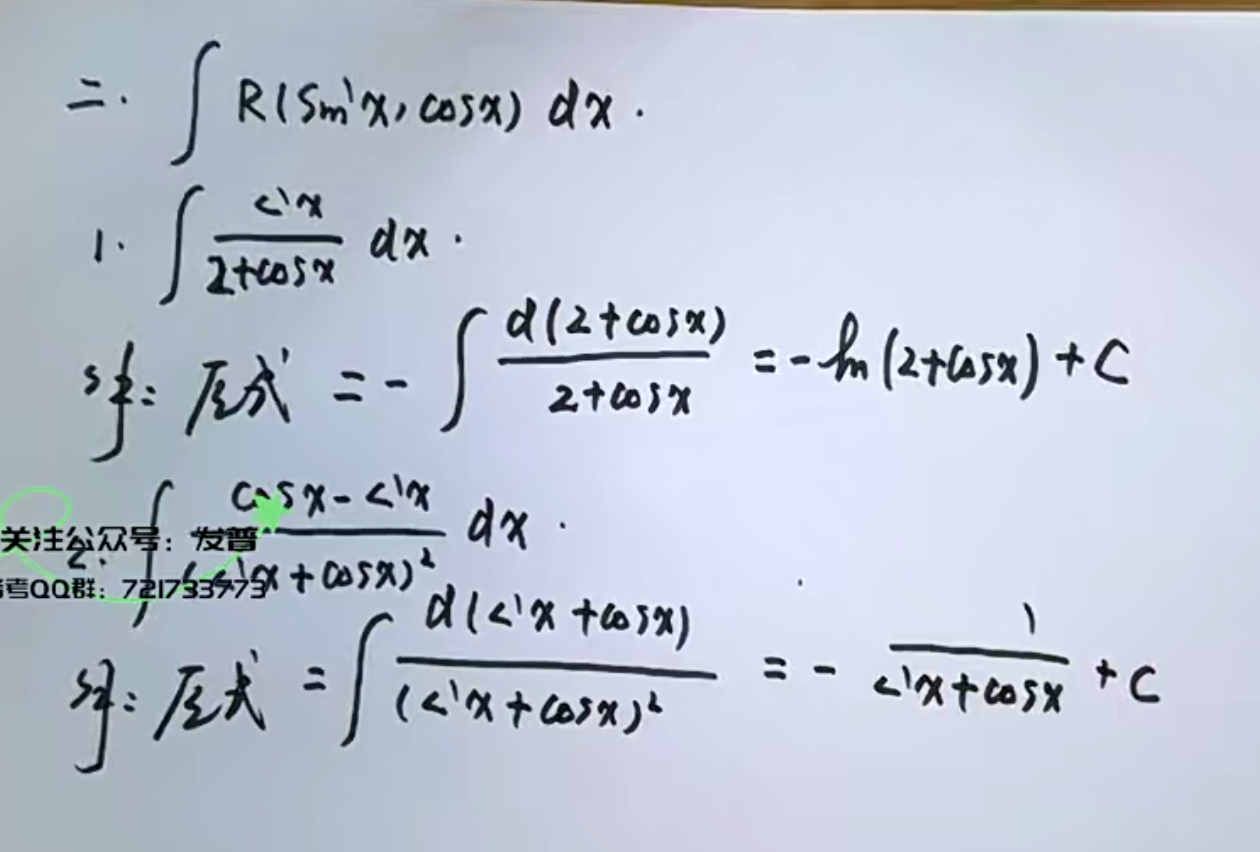 二. ∫ R(sin x, cos x) dx.
1. ∫ sin x / (2+cos x) dx.
解: 原式 = - ∫ d(2+cos x) / (2+cos x) = - ln(2+cos x) + C
2. ∫ (cos x - sin x) / (sin x + cos x)² dx.
关注公众号：发普
考QQ群：721733973
解: 原式 = ∫ d(sin x + cos x) / (sin x + cos x)² = - 1 / (sin x + cos x) + C